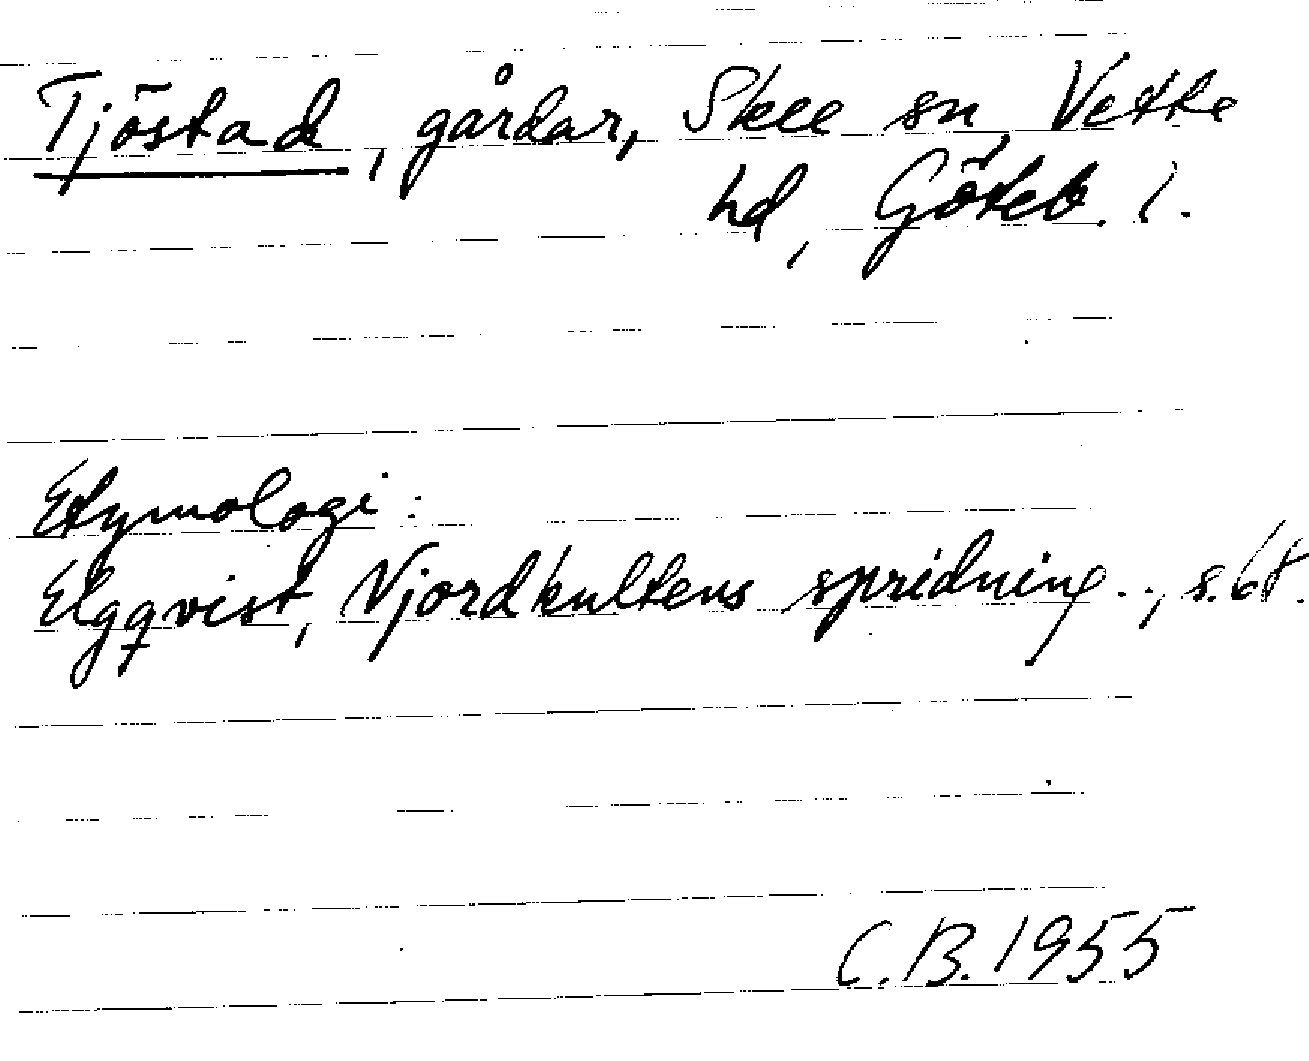 Tjöstad, gårdar, Skee sn, Vette
hd, Göteb. l.
Etymologi:
Elgqvist, Njordkultens spridning.., s. 68.
C.B. 1955